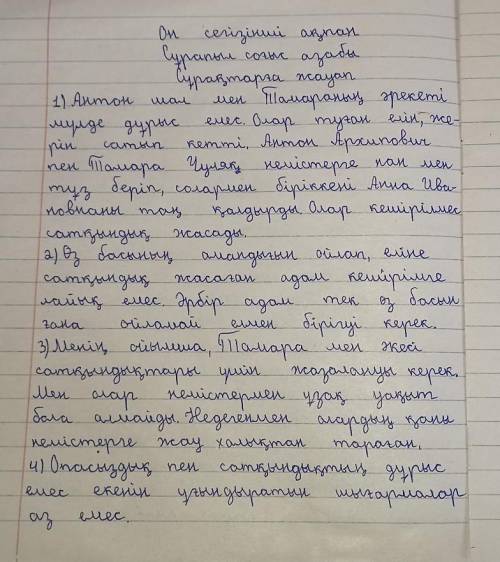 Он сегізінші ақпан
Сұрапыл соғыс азабы
Сұрақтарға жауап
1) Антон шал мен Тамараның әрекеті
мүлде дұрыс емес. Олар туған елін, же-
рін сатып кетті. Антон Архипович
пен Тамара Чуляк немістерге нан мен
тұз беріп, солармен біріккені Анна Ива-
новнаны таң қалдырды. Олар кешірілмес
сатқындық жасады.
2) Өз басының амандығын ойлап, еліне
сатқындық жасаған адам кешірімге
лайық емес. Әрбір адам тек өз басын
ғана ойламай елмен бірігуі керек.
3) Менің ойымша, Тамара мен әкесі
сатқындықтары үшін жазалануы керек.
Мен олар немістермен ұзақ уақыт
бола алмайды. Недегенмен олардың қаны
немістерге жау халықтан тараған.
4) Опасыздық пен сатқындықтың дұрыс
емес екенін ұғындыратын шығармалар
аз емес.